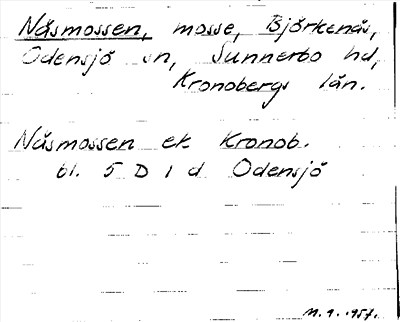 Näsmossen, mosse, Björkenäs,
Odensjö sn, Sunnerbo hd,
Kronobergs län.
Näsmossen ek Kronob.
bl. 5 D 1 d Odensjö